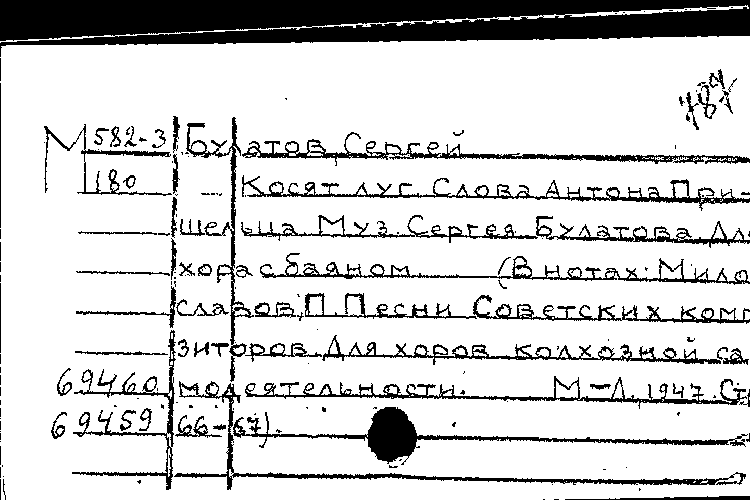 787
М 582-3 Булатов Сергей
180 — Косят луг. Слова Антона При-
шельца. Муз. Сергея Булатова. Для
хора с баяном. (В нотах: Мило
славов, П. Песни Советских комп
зиторов. Для хоров колхозной са
69460 модеятельности. М.-Л., 1947. Стр
69459 66-67).